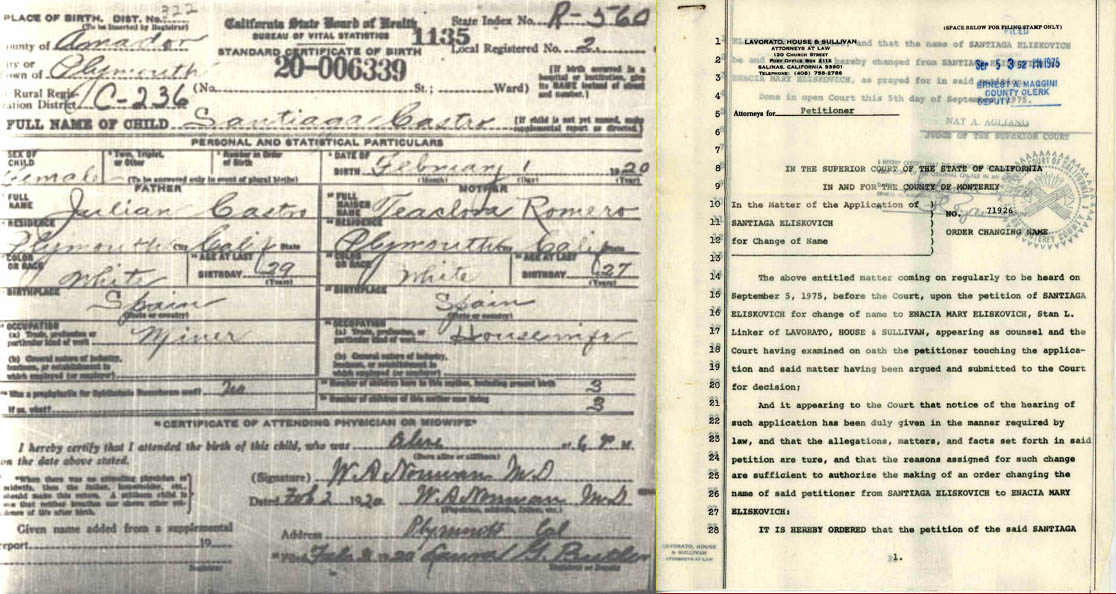 PLACE OF BIRTH, DIST. No. 322
(To be inserted by Registrar)
County of Amador
City or
Town of Plymouth
Rural Regis-
tration District C-236
California State Board of Health
BUREAU OF VITAL STATISTICS
1135
STANDARD CERTIFICATE OF BIRTH
20-006339
State Index No. R-560
Local Registered No. 2
(No. St.; Ward)
[If birth occurred in a
hospital or institution, give
its NAME instead of street
and number.]
FULL NAME OF CHILD Santiaga Castro
[If child is not yet named, make
supplemental report as directed.]
PERSONAL AND STATISTICAL PARTICULARS
SEX OF
CHILD Female
Twin, Triplet,
or Other
Number in Order
of Birth
(To be answered only in event of plural births)
DATE OF
BIRTH February 1 1920
(Month) (Day) (Year)
FATHER
FULL
NAME Julian Castro
RESIDENCE
Plymouth City Calif State
COLOR
OR RACE White
AGE AT LAST
BIRTHDAY 29
(Years)
BIRTHPLACE
Spain
(State or country)
OCCUPATION
(a) Trade, profession or
particular kind of work Miner
(b) General nature of industry,
business, or establishment in
which employed (or employer)
MOTHER
FULL
MAIDEN
NAME Romero
RESIDENCE
Plymouth City Calif State
COLOR
OR RACE White
AGE AT LAST
BIRTHDAY 27
(Years)
BIRTHPLACE
Spain
(State or country)
OCCUPATION
(a) Trade, profession or
particular kind of work Housewife
(b) General nature of industry,
business, or establishment in
which employed (or employer)
Was a prophylactic for Ophthalmia Neonatorum used?
If so, what?
Number of children born to this mother, including present birth 3
Number of children of this mother now living 3
CERTIFICATE OF ATTENDING PHYSICIAN OR MIDWIFE*
I hereby certify that I attended the birth of this child, who was Alive at 6 P M.
(Born alive or stillborn)
on the date above stated.
*When there was no attending physician or
midwife, then the father, householder, etc.,
should make this return. A stillborn child is
one that neither breathes nor shows other evi-
dence of life after birth.
(Signature) W A Norman M D
Dated Feb 2 1920 W A Norman M D
(Physician, midwife, father, etc.)
Given name added from a supplemental
report 19
Registrar
Address Plymouth Cal
Registrar or Deputy
(SPACE BELOW FOR FILING STAMP ONLY)
LAVORATO, HOUSE & SULLIVAN
ATTORNEYS AT LAW
130 CHURCH STREET
POST OFFICE BOX 2118
SALINAS, CALIFORNIA 93901
TELEPHONE: (408) 758-2786
FILED
SEP 5 3 52 PM 1975
ERNEST A. MAGGINI
COUNTY CLERK
DEPUTY
Done in open Court this 5th day of September, 1975.
NAT A. AGLIANO
JUDGE OF THE SUPERIOR COURT
Attorneys for Petitioner
1
2
3
4
5
6
7
8 IN THE SUPERIOR COURT OF THE STATE OF CALIFORNIA
9 IN AND FOR THE COUNTY OF MONTEREY
10 In the Matter of the Application of ) NO. 71926
11 SANTIAGA ELISKOVICH ) ORDER CHANGING NAME
12 for Change of Name )
13
14 The above entitled matter coming on regularly to be heard on
15 September 5, 1975, before the Court, upon the petition of SANTIAGA
16 ELISKOVICH for change of name to ENACIA MARY ELISKOVICH, Stan L.
17 Linker of LAVORATO, HOUSE & SULLIVAN, appearing as counsel and the
18 Court having examined on oath the petitioner touching the applica-
19 tion and said matter having been argued and submitted to the Court
20 for decision;
21 And it appearing to the Court that notice of the hearing of
22 such application has been duly given in the manner required by
23 law, and that the allegations, matters, and facts set forth in said
24 petition are ture, and that the reasons assigned for such change
25 are sufficient to authorize the making of an order changing the
26 name of said petitioner from SANTIAGA ELISKOVICH to ENACIA MARY
27 ELISKOVICH:
28 IT IS HEREBY ORDERED that the petition of the said SANTIAGA
LAVORATO, HOUSE
& SULLIVAN
ATTORNEYS AT LAW
1.